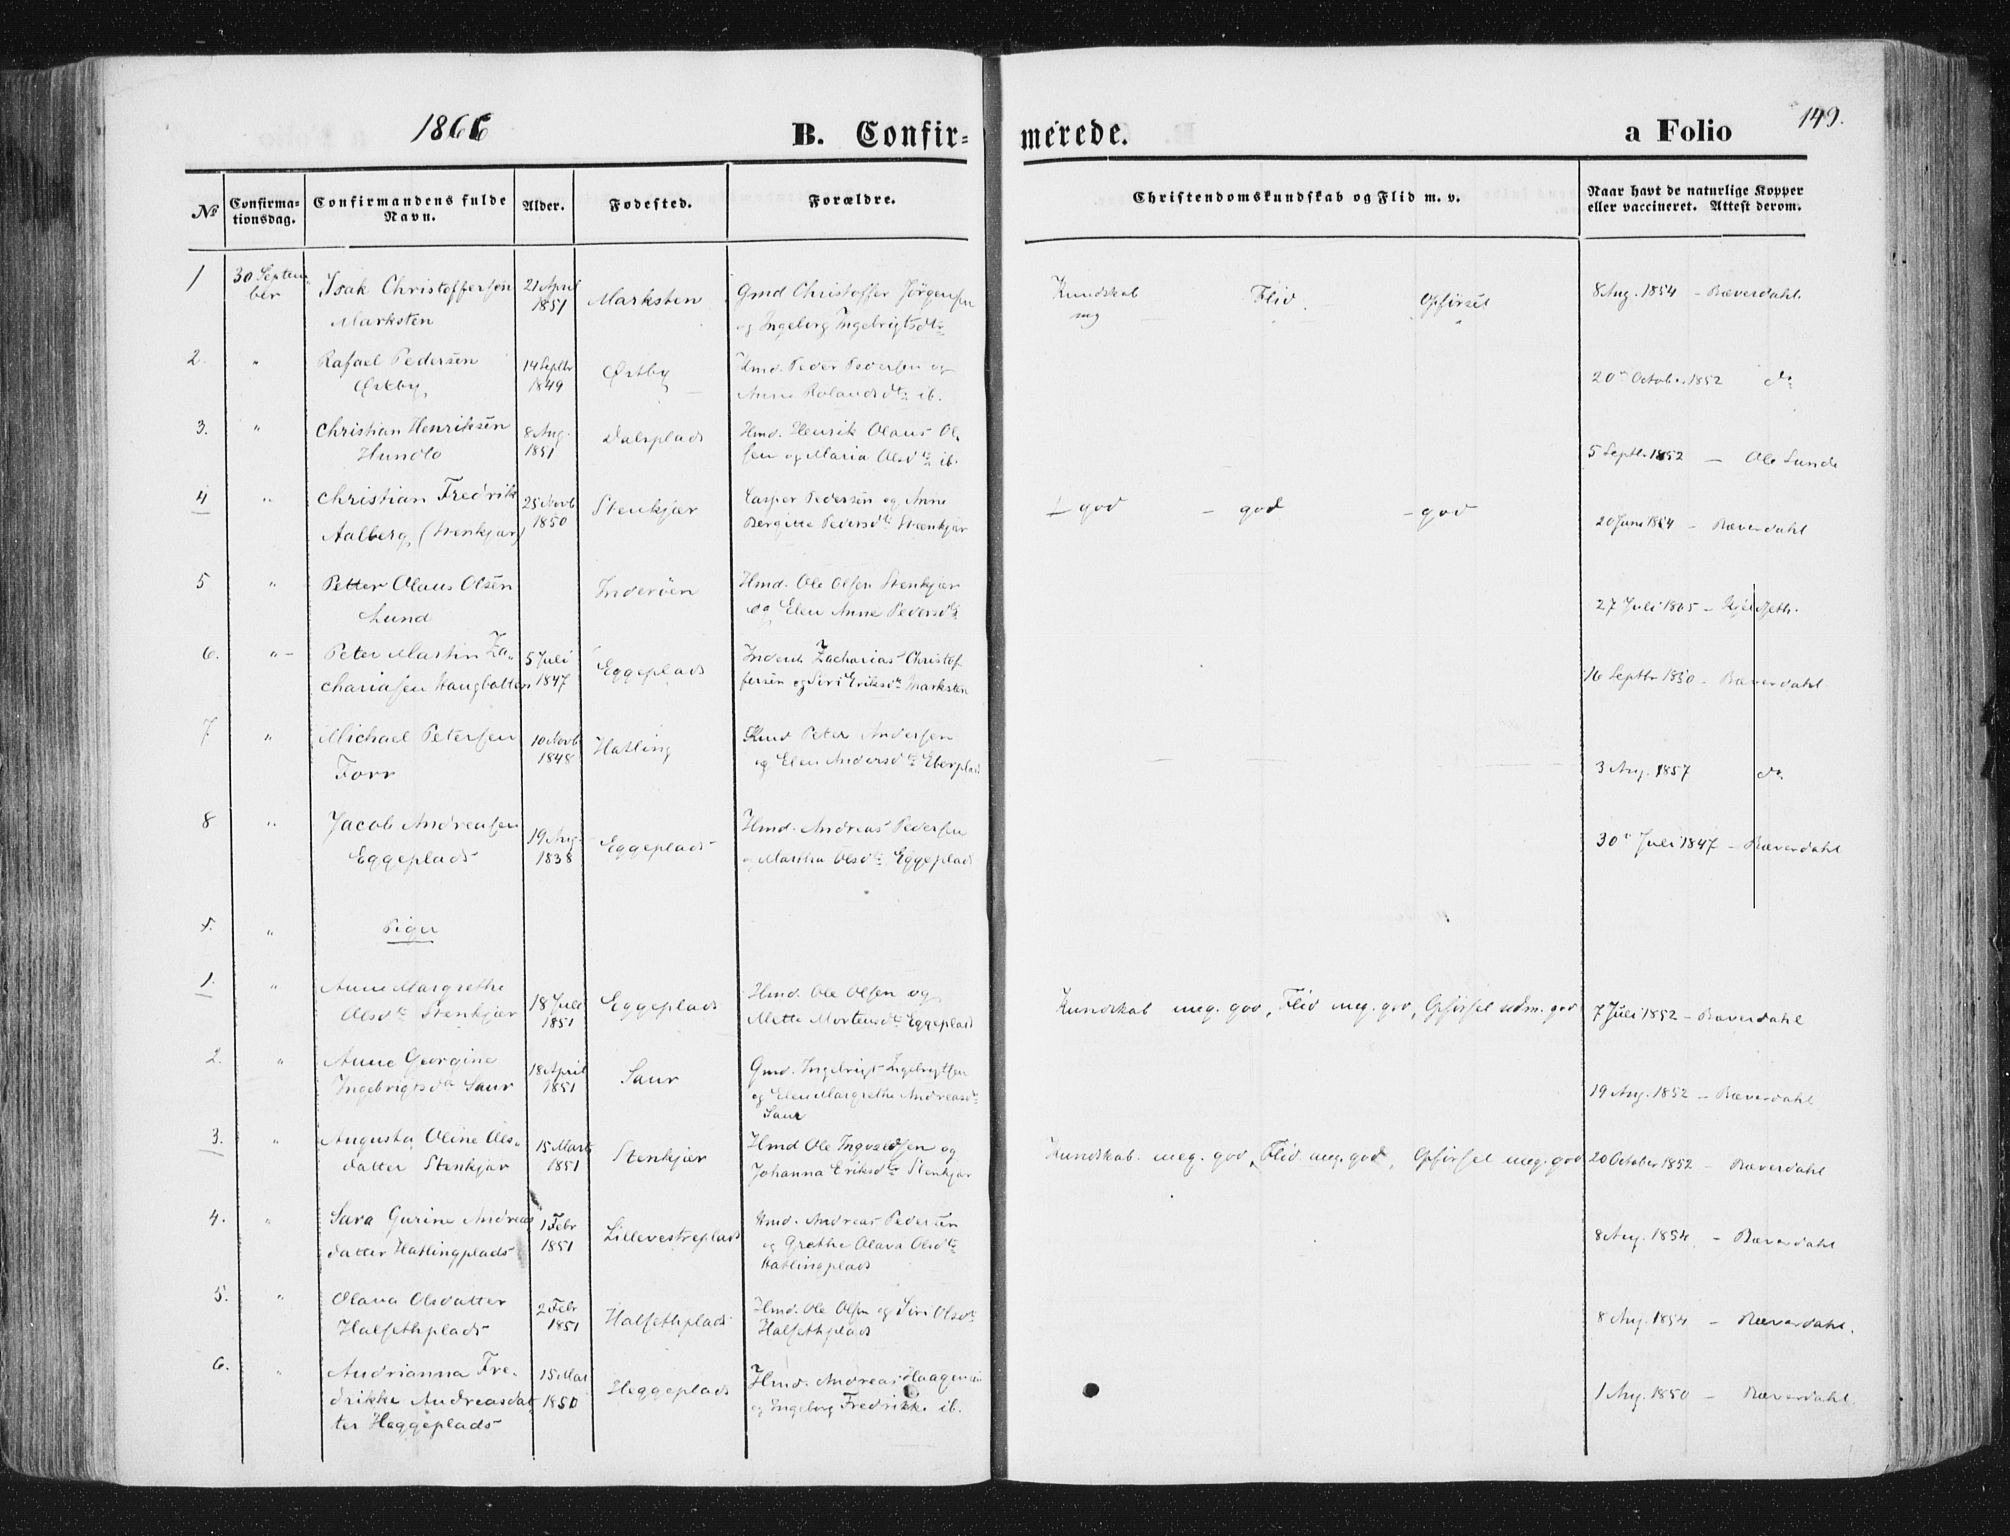 1866
B. Confir=
merede.
a Folio
149.
№
Confirma-
tionsdag.
Confirmandens fulde
Navn.
Alder.
Fødested.
Forældre.
Christendomskundskab og Flid m. v.
Naar havt de naturlige Kopper
eller vaccineret. Attest derom.
1
30 Septem
ber
Isak Christoffersen
Marksten
21 April
1851
Marksten
Gmd Christoffer Jörgensen
og Ingeborg Ingebrigtsdtr
Kundskab
mg
Flid
Opførsel
8 Aug. 1854 - Bæverdahl.
2.
"
Rafael Pedersen
Østby
14 Septbr
1849
Østby
Hmd. Peder Pedersen og
Anne Rolandsdtr ib.
20de October 1852 do
3.
"
Christian Henriksen
Hundlo
8 Aug.
1851
Dalsplads
Hmd. Henrik Olaus Ol-
sen og Maria Olsdtr ib.
5 Septb. 1852 - Ole Sunde
4
"
Christian Fredrik
Aalberg (Stenkjær)
25 Novb
1850
Stenkjær
Casper Pedersen og Anne
Bergitte Pedersdtr Stenkjær
god - god - god
20 Juni 1854 - Bæverdahl
5
"
Petter Olaus Olsen
Lund
Inderöen
Hmd. Ole Olsen Stenkjær
og Elen Anne Pedersdtr
27 Juli 1865 -
6.
" -
Peter Martin Za-
chariasen Haugbotten
5 Juli
1847
Eggeplads
Inderst Zacharias Christof
fersen og Siri Eriksdtr Marksten
16 Septbr 1850 - Bæverdahl.
7
"
Michael Petersen
Forr
10 Novb
1848
Hatling
Hmd Peter Andersen
og Elen Andersdtr Eberplads
3 Aug. 1857 do.
8
"
Jacob Andreasen
Eggeplads
19 Aug.
1838
Eggeplads
Hmd. Andreas Pedersen
og Martha Olsdtr Eggeplads
30 Juli 1847 - Bæverdahl
"
Piger
1.
"
Anne Margrethe
Olsdtr Stenkjær
18 Juli
1851
Eggeplads
Hmd. Ole Olsen og
Mette Mortensdtr Eggeplads
Kundskab meg. god, Flid meg. god, Opførsel udm. god
7 Juli 1852 - Bæverdahl
2.
"
Anne Georgine
Ingebrigtsdtr Saur
18 April
1851
Saur
Gmd. Ingebrigt Ingebrigtsen
og Elen Margrethe Andreasdtr
Saur
19 Aug. 1852 - Bæverdahl
3.
"
Augusta Oline Ols-
datter Stenkjær
15 Marts
1851
Stenkjær
Hmd Ole Ingvaldsen og
Johanna Eriksdtr Stenkjær
Kundskab. meg. god, Flid meg. god, Opførsel meg. god
20 October 1852 - Bæverdahl
4.
"
Sara Gurine Andreas
datter Hatlingplads
1 Febr
1851
Lillevestreplads
Hmd. Andreas Pedersen
og Grethe Olava Olsdtr
Hatlingplads
8 Aug. 1854. - Bæverdahl
5.
"
Olava Olsdatter
Halsethplads
2 Febr
1851
Halsethplads
Hmd. Ole Olsen og Siri Olsdtr
Halsethplads
8 Aug. 1854 - Bæverdahl.
6.
"
Andrianna Fre-
drikke Andreasdat
ter Heggeplads
15 Mai
1850
Heggeplads
Hmd. Andreas Haagensen
og Ingeborg Fredrikke ib.
1 Aug. 1850 - Bæverdahl.